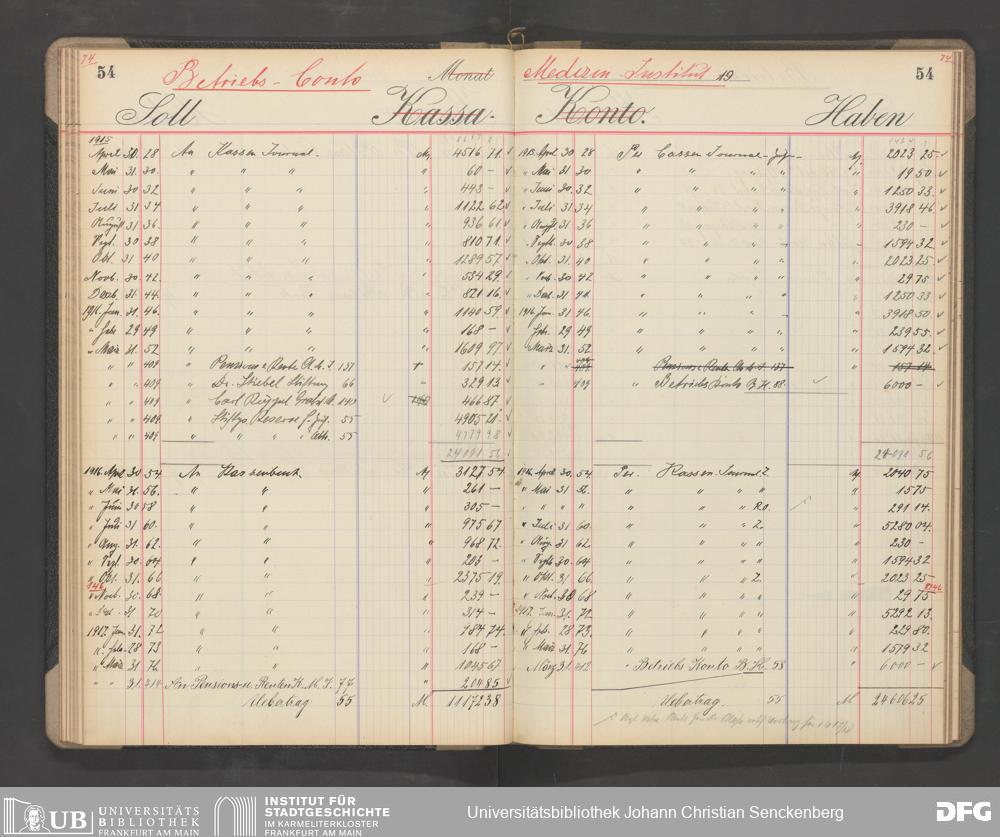 74 74
54 Betriebs-Conto Monat Medizin-Institut 19 54
Soll Kassa. Konto. Haben
1915
April 30. 28 An Kassen Journal. M 4516 71.
Mai 31. 30. " " " " 60 —
Juni 30 32 " " " " 443 —
Juli 31 34 " " " " 1122 62
August 31 36 " " " " 936 61
Sept. 30 38 " " " " 810 71.
Okt. 31 40 " " " " 1289 57
Novb. 30 42. " " " " 534 29.
Dezb. 31. 44. " " " " 821 16.
1916 Jan. 31. 46. " " " " 1040 59.
" Febr. 29 49 " " " " 168 —
" März 31. 52 " " " " 1609 97
" " 409 " Pensions & Rente Ct. M. I. 157 157 14.
" " 409 " Dr. Stiebel Stiftung 66 " 329 13
" " 409 " Carl Rüppel 140 466 87
" " 409 " Stiftgs Reserve 55 4905 21
" " 409 " " " " 55 4779 98
24091 56
1916 April 30 54 An Kassenbuch M 3127 54
" Mai 31. 56. " " " 261 —
" Juni 30 58 " " " 305 —
" Juli 31 60. " " " 975 67
" Aug. 31. 62. " " " 968 72.
" Sept. 30. 64 " " " 203 —
" Okt. 31. 66 " " " 2375 19.
146
" Novb. 30. 68. " " " 239 —
" Dez. 31 70 " " " 314 —
1917. Jan. 31. 72 " " " 787 74.
" Febr. 28 73 " " " 168 —
" März 31 76 " " " 1045 67
" " 31. 214 An Pensions u. Renten K. M. I. 77 " 204 85
Uebertrag 55 M. 11172 38
1915 April 30 28 Per Cassen Journal M 2023 25
" Mai 31 30 " " " " " 19 50
" Juni 30. 32 " " " " " 1250 33
" Juli 31 34 " " " " " 3918 46
" August 31 36 " " " " " 230 —
" Septb. 30 38 " " " " " 1594 32
" Okt. 31. 40 " " " " " 2023 25
" Nov. 30 42 " " " " " 29 75
" Dez. 31 44. " " " " " 1250 33
1916. Jan. 31 46. " " " " 3918 50
" Febr. 29 49 " " " " " 239 55
" März 31. 52 " " " " " 1594 32
" " 409 " Pensions & Rente Conto I. 157 157 14
" " 409 " Betriebs Konto B.H. 58. 6000 —
24091 56
1916. April 30. 54. Per. Kassen Journal Z. M 2040 75
" Mai 31 56. " " " " 15 75
" " " " " " " Ro. " 291 14.
" Juli 31 60. " " " Z. " 5280 04.
" Aug. 31 62 " " " " 230 —
" Septb 30. 64 " " " " 1594 32
" Okt. 31 66. " " " Z. " 2023 25
146
" Novb. 30 68. " " " " 29 75
1917. Jan. 31. 72. " " " " 5292 13.
" Feb. 28 73. " " " " 229 80.
" März 31. 76 " " " " 1579 32
März 31 213 " Betriebs Konto B.H. 58 " 6000 —
Uebertrag. 55 M 24606 25
UB UNIVERSITÄTS BIBLIOTHEK FRANKFURT AM MAIN
INSTITUT FÜR STADTGESCHICHTE IM KARMELITERKLOSTER FRANKFURT AM MAIN
Universitätsbibliothek Johann Christian Senckenberg
DFG